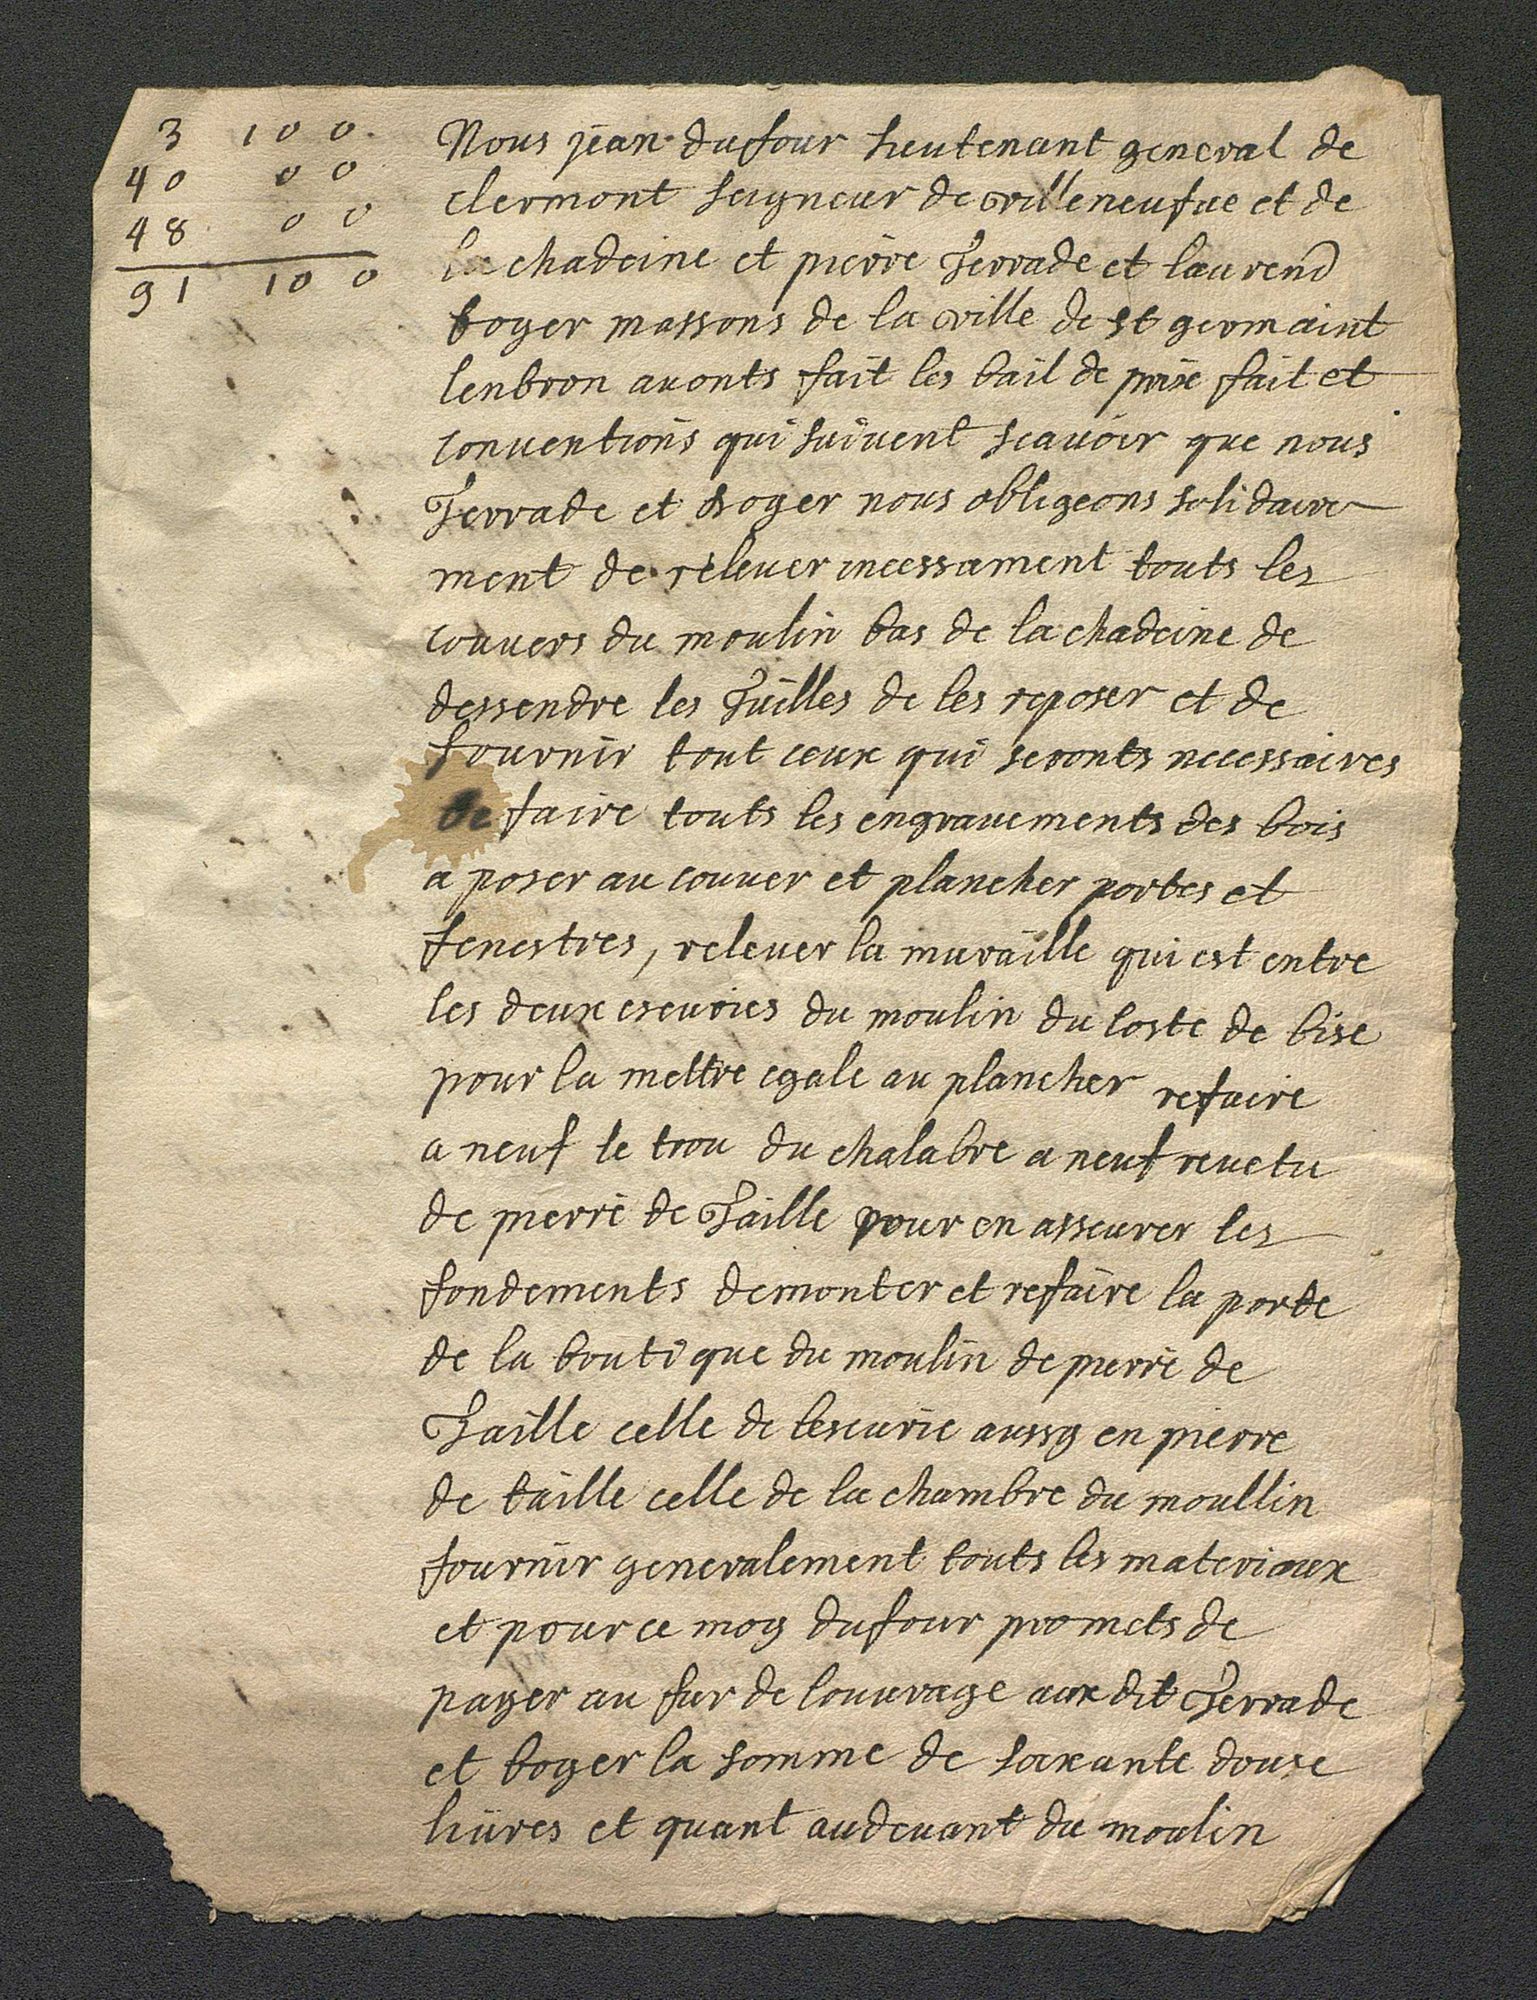 3 10 0
40 0 0
48 0 0
91 10 0
Nous jean dufour lieutenant general de
clermont seigneur de villeneufue et de
la chadeine et pierre Terrade et laurend
boyer massons de la ville de st germaint
lenbron auonts fait les bail de prix fait et
conventions qui suivent scauoir que nous
Terrade et boyer nous obligeons solidaire
ment de releuer incessament touts les
couvers du moulin bas de la chadeine de
dessendre les Tuilles de les reposer et de
fournir tout ceux qui seronts necessaires
de faire touts les engrauements des bois
a poser au couuer et plancher portes et
fenestres, releuer la muraille qui est entre
les deux escuries du moulin du coste de bise
pour la mettre egale au plancher refaire
a neuf le trou du chalabre a neuf reuetu
de pierre de Taille pour en asseurer les
fondements demonter et refaire la porte
de la boutique du moulin de pierre de
Taille celle de lescurie aussy en pierre
de taille celle de la chambre du moullin
fournir generalement touts les materiaux
et pour ce moy dufour promets de
payer au fur de louurage aux dit Terrade
et boyer la somme de soixante douse
liures et quant audeuant du moulin